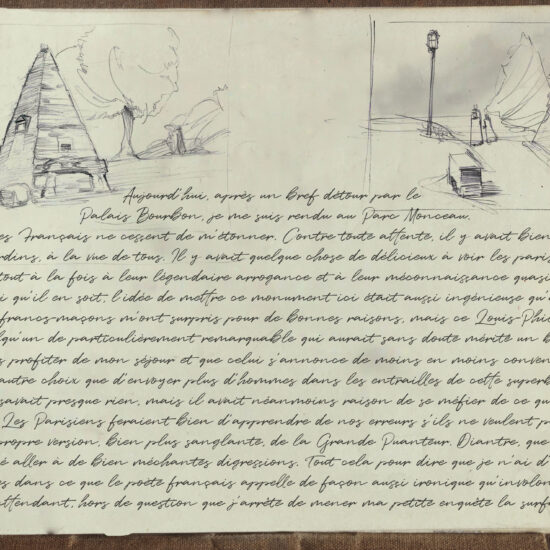 Aujourd'hui, après un bref détour par le
Palais Bourbon, je me suis rendu au Parc Monceau.
es Français ne cessent de m'étonner. Contre toute attente, il y avait bien
rdins, à la vue de tous. Il y avait quelque chose de délicieux à voir les paris
tout à la fois à leur légendaire arrogance et à leur méconnaissance quasi
i qu'il en soit, l'idée de mettre ce monument ici était aussi ingénieuse qu'
francs-maçons m'ont surpris pour de bonnes raisons, mais ce Louis-Phi
lqu'un de particulièrement remarquable qui aurait sans doute mérité un b
s profiter de mon séjour et que celui s'annonce de moins en moins conven
autre choix que d'envoyer plus d'hommes dans les entrailles de cette superb
savait presque rien, mais il avait néanmoins raison de se méfier de ce qu
Les Parisiens feraient bien d'apprendre de nos erreurs s'ils ne veulent p
propre version, bien plus sanglante, de la Grande Puanteur. Diantre, que
é aller à de bien méchantes digressions. Tout cela pour dire que je n'ai d
s dans ce que le poète français appelle de façon aussi ironique qu'involon
attendant, hors de question que j'arrête de mener ma petite enquête la surf